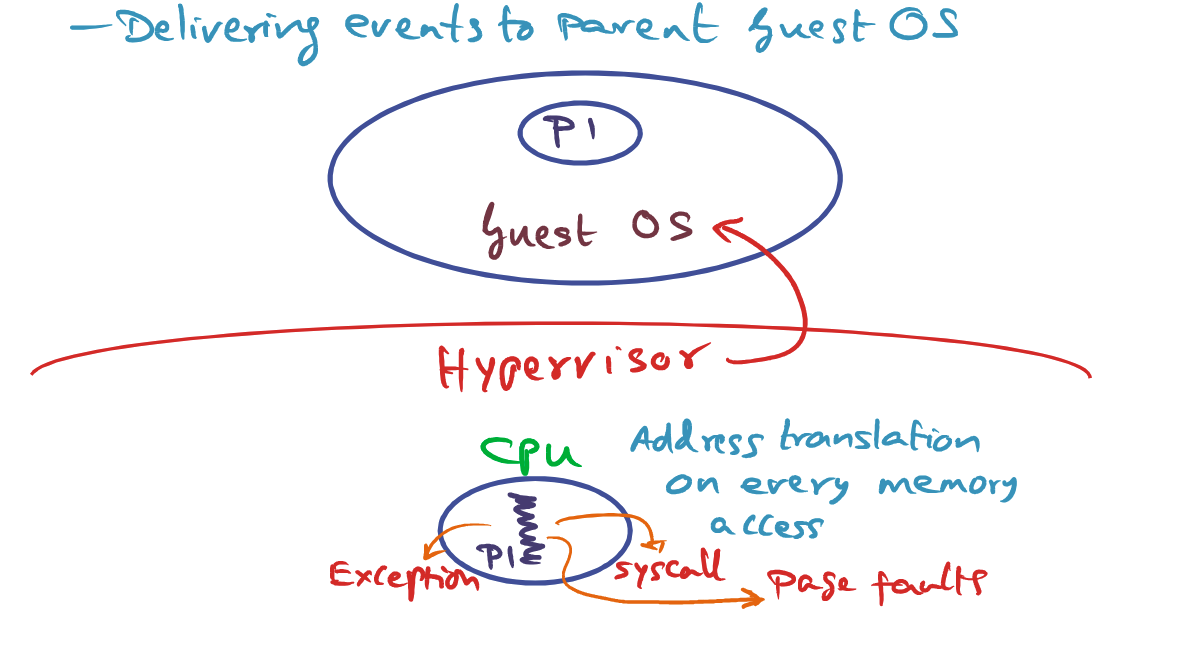 —Delivering events to parent Guest OS
P1
Guest OS
Hypervisor
CPU
Address translation
on every memory
access
P1
Exception
syscall
Page faults